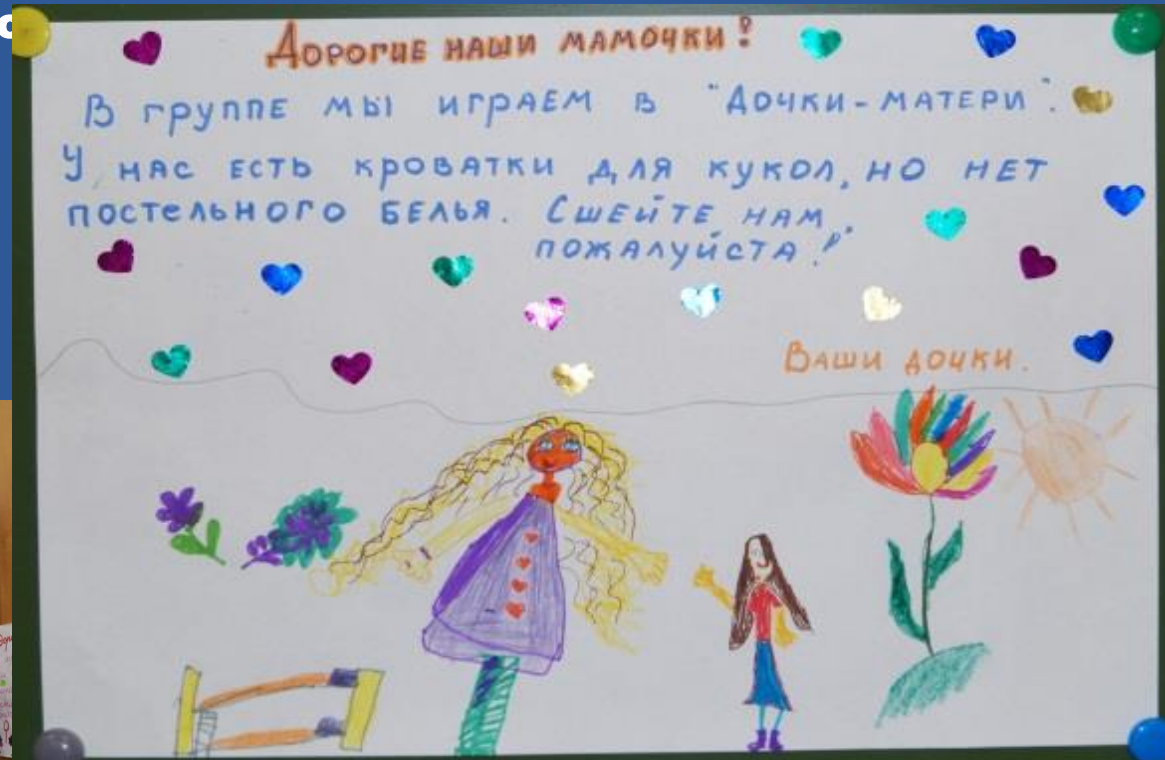 Дорогие наши мамочки!
В группе мы играем в "Дочки-матери".
У нас есть кроватки для кукол, но нет
постельного белья. Сшейте нам,
пожалуйста!
Ваши дочки.